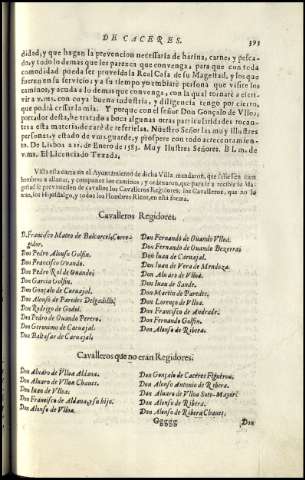 DE CACERES.
393
didad, y que hagan la prevencion necessaria de harina, carne, y pesca-
do, y todo lo demas que les parezca que convenga, para que con toda
comodidad pueda ser proveida la Real Casa de su Magestad, y los que
fueren en su servicio; y a su tiempo yo embiarè persona que visite los
caminos, y acuda a lo demas que convenga, con la qual tornarè a escri-
vir a v.ms. con cuya buena industria, y diligencia tengo por cierto,
que podrà cessar la mia. Y porque con el señor Don Gonçalo de Vlloa,
portador desta, he tratado a boca algunas otras particularidades tocan-
tes a esta materia dexarè de referirlas. Nuestro Señor las muy illustres
personas, y estado de v.ms. guarde, y prospere con todo acrecentamien-
to. De Lisboa a 21. de Enero de 1583. Muy Illustres Señores. B L. m. de
v.ms. El Licenciado Texada.
Vista esta carta en el Ayuntamiento de dicha Villa mandaron, que fuessen cien
hombres a allanar, y componer los caminos, y ordenaron, que para ir a recibir a su Ma-
gestad se previniessen de cavallos los Cavalleros Regidores; los Cavalleros, que no lo
eran, los Hijosdalgo, y todos los Hombres Ricos, en esta forma.
Cavalleros Regidores.
D. Francisco Mateo de Balcarcel, Corre-
gidor.
Don Pedro Alonso Golfin.
Don Francisco Ovando.
Don Pedro Rol de Ovando.
Don Garcia Golfin.
Don Gonçalo de Carvajal.
Don Alonso de Paredes Delgadillo.
Don Rodrigo de Godoi.
Don Pedro de Ovando Perero.
Don Geronimo de Carvajal.
Don Baltasar de Carvajal.
Don Fernando de Ovando Vlloa.
Don Fernando de Ovando Bexerra.
Don Juan de Carvajal.
Don Juan de Vera de Mendoza.
Don Alvaro de Vlloa.
Don Juan de Sande.
Don Martin de Paredes.
Don Lorenço de Vlloa.
Don Francisco de Andrada.
Don Fernando Golfin.
Don Alonso de Ribera.
Cavalleros que no eran Regidores.
Don Alvaro de Vlloa Aldana.
Don Alvaro de Vlloa Chaves.
Don Juan de Vlloa.
Don Francisco de Aldana, y su hijo.
Don Alonso de Vlloa.
Don Gonçalo de Caceres Figueroa.
Don Alonso Antonio de Ribera.
Don Alvaro de Vlloa
Don Alonso de Ribera.
Don Alonso de Ribera Chaves.
Ggggg
Don